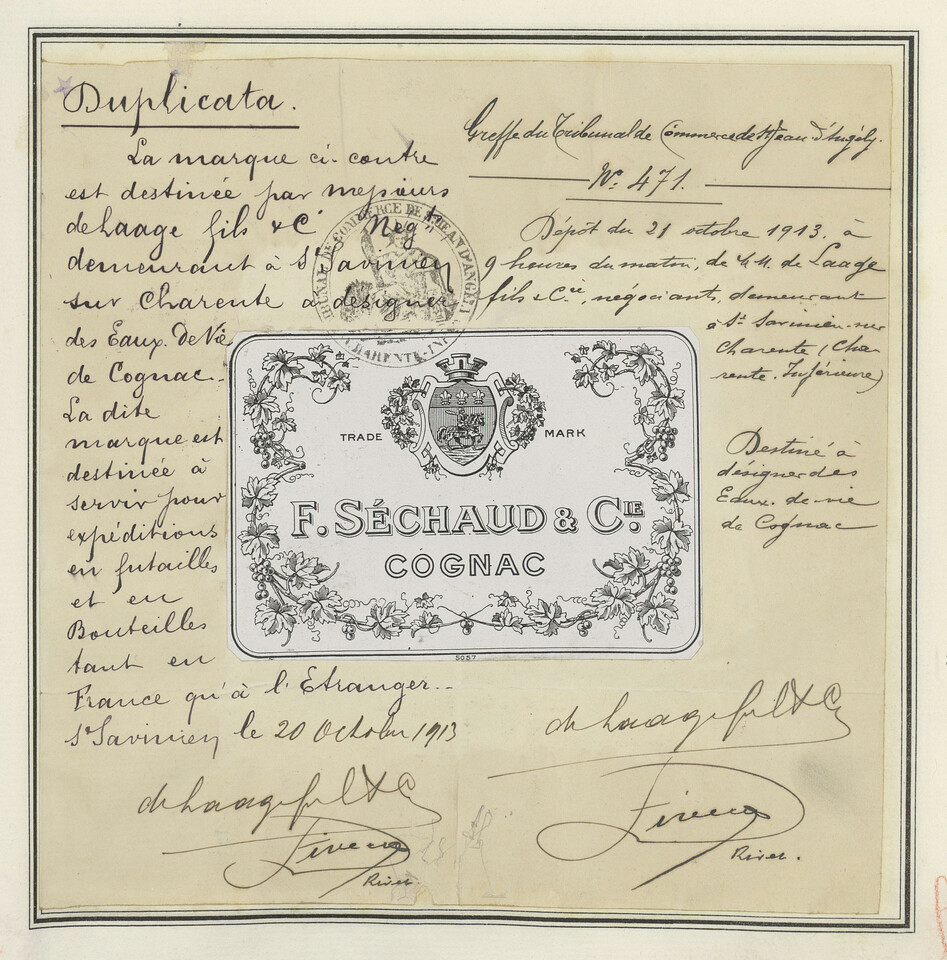 Duplicata.
La marque ci-contre
est destinée par messieurs
de Laage fils & Cie Négts
demeurant à St Savinien
sur Charente à désigner
des Eaux-De Vie
de Cognac.
La dite
marque est
destinée à
servir pour
expéditions
en futailles
et en
Bouteilles
tant en
France qu'à l'Etranger--
St Savinien le 20 Octobre 1913
de Laage fils & Cie
Rivet
Greffe du Tribunal de Commerce de St Jean d'Angély.
No 471.
Dépôt du 21 octobre 1913. à
9 heures du matin, de M.M. de Laage
fils & Cie, négociants, demeurant
à St Savinien-sur
Charente (Cha-
rente. Inférieure)
Destiné à
désigner des
Eaux-de-vie
de Cognac
TRIBUNAL DE COMMERCE DE ST JEAN D'ANGELY
CHARENTE-INF
TRADE MARK
F. SÉCHAUD & CIE.
COGNAC
5057
de Laage fils & Cie
Rivet.